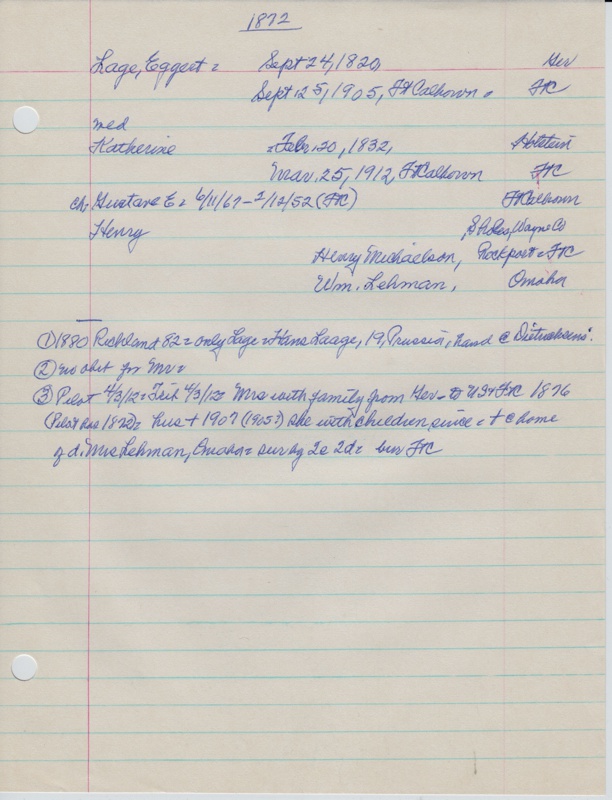 1872
Lage, Eggert = Sept 24, 1820, Ger
Sept. 25, 1905, Ft Calhoun = FC
med
Katherine = Feb. 20, 1832, Holstein
Mar. 25, 1912, Ft Calhoun FC
ch. Gustave E = 6/11/67 - 1/12/52 (FC) Ft Calhoun
Henry Sholes, Wayne Co
Henry Michaelson, Rockport = FC
Wm. Lehman, Omaha
(1) 1880 Richland 82 = only Lage = Hans Laage, 19, Prussia, hand @
(2) no obit for Mr =
(3) Pilot 4/3/12 = Trib 4/3/12 = Mrs with family from Ger - to US & FC 1876
(Pilot has 1872) = hus + 1907 (1905?) she with children since = + @ home
of d. Mrs Lehman, Omaha = sur by 2s 2d = bur FC